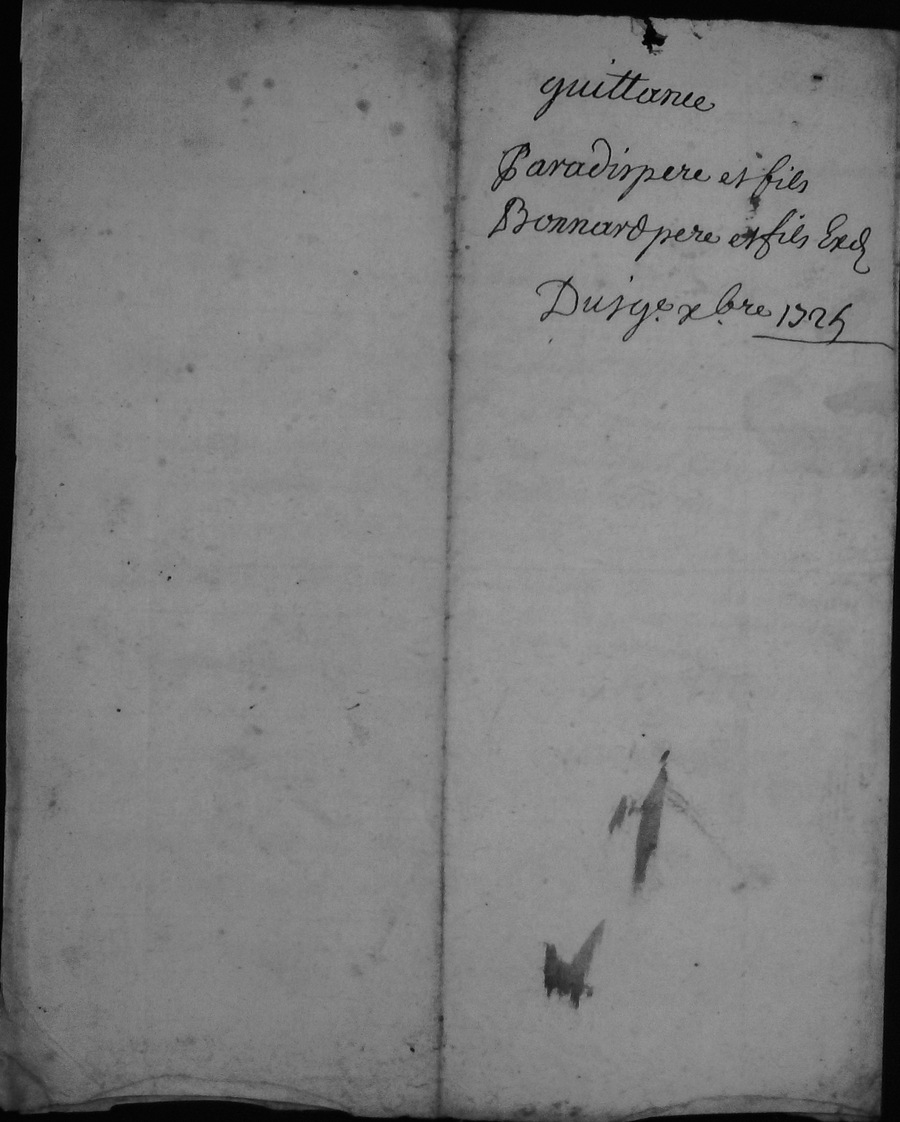 quittance
Paradis pere et fils
Bonnard pere et fils
Du 19e xbre 1725